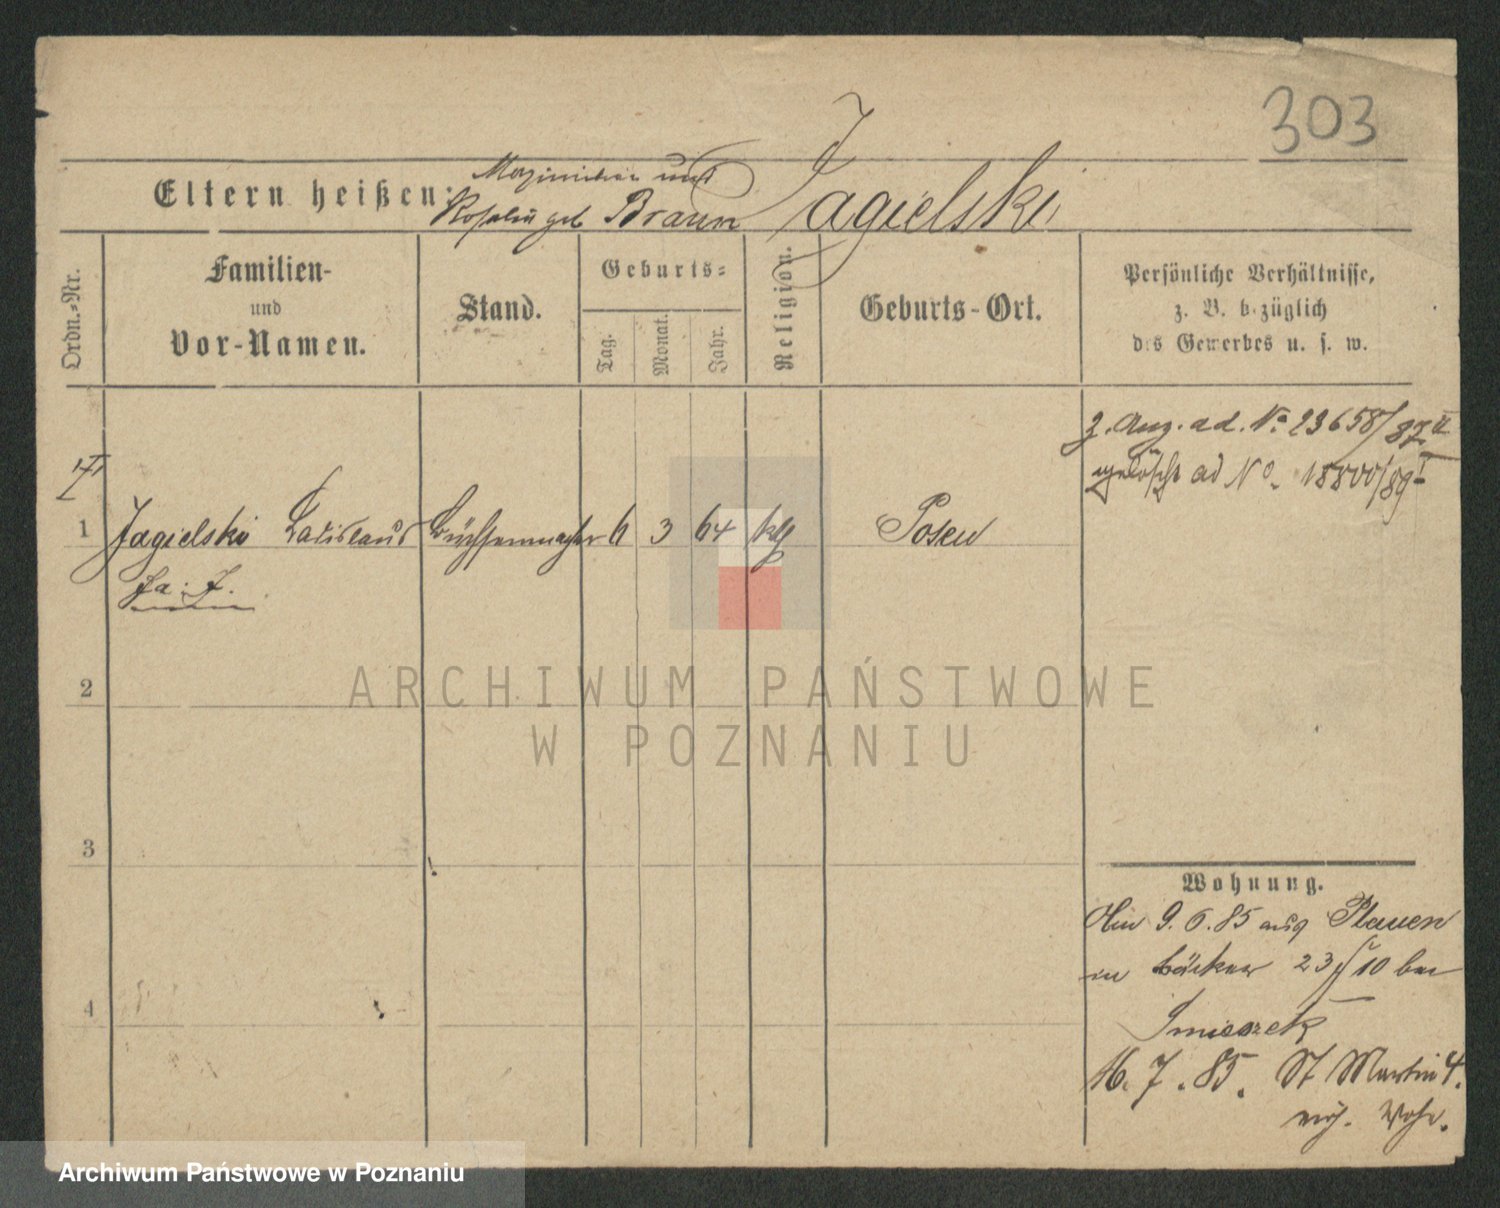 303
Eltern heißen: Maximilian und
Rosalie geb Braun Jagielski
Ordn.-Nr.
Familien-
und
Vor-Namen.
Stand.
Geburts-
Tag.
Monat.
Jahr.
Religion.
Geburts-Ort.
Persönliche Verhältnisse,
z. B. bezüglich
des Gewerbes u. s. w.
z. Ang. ad. No 23658/87 II
gelöscht ad No. 18800/89 I
1 Jagielski Ladislaus Büchsenmacher 6 3 64 kth Posen
Ja. J.
2
3
4
Wohnung.
Hin 9.6.85 aus Plauen
in Bäcker 23/10 bei
Smieszek
16.7.85. St Martin 4.
Wohn.
ARCHIWUM PAŃSTWOWE
W POZNANIU
Archiwum Państwowe w Poznaniu